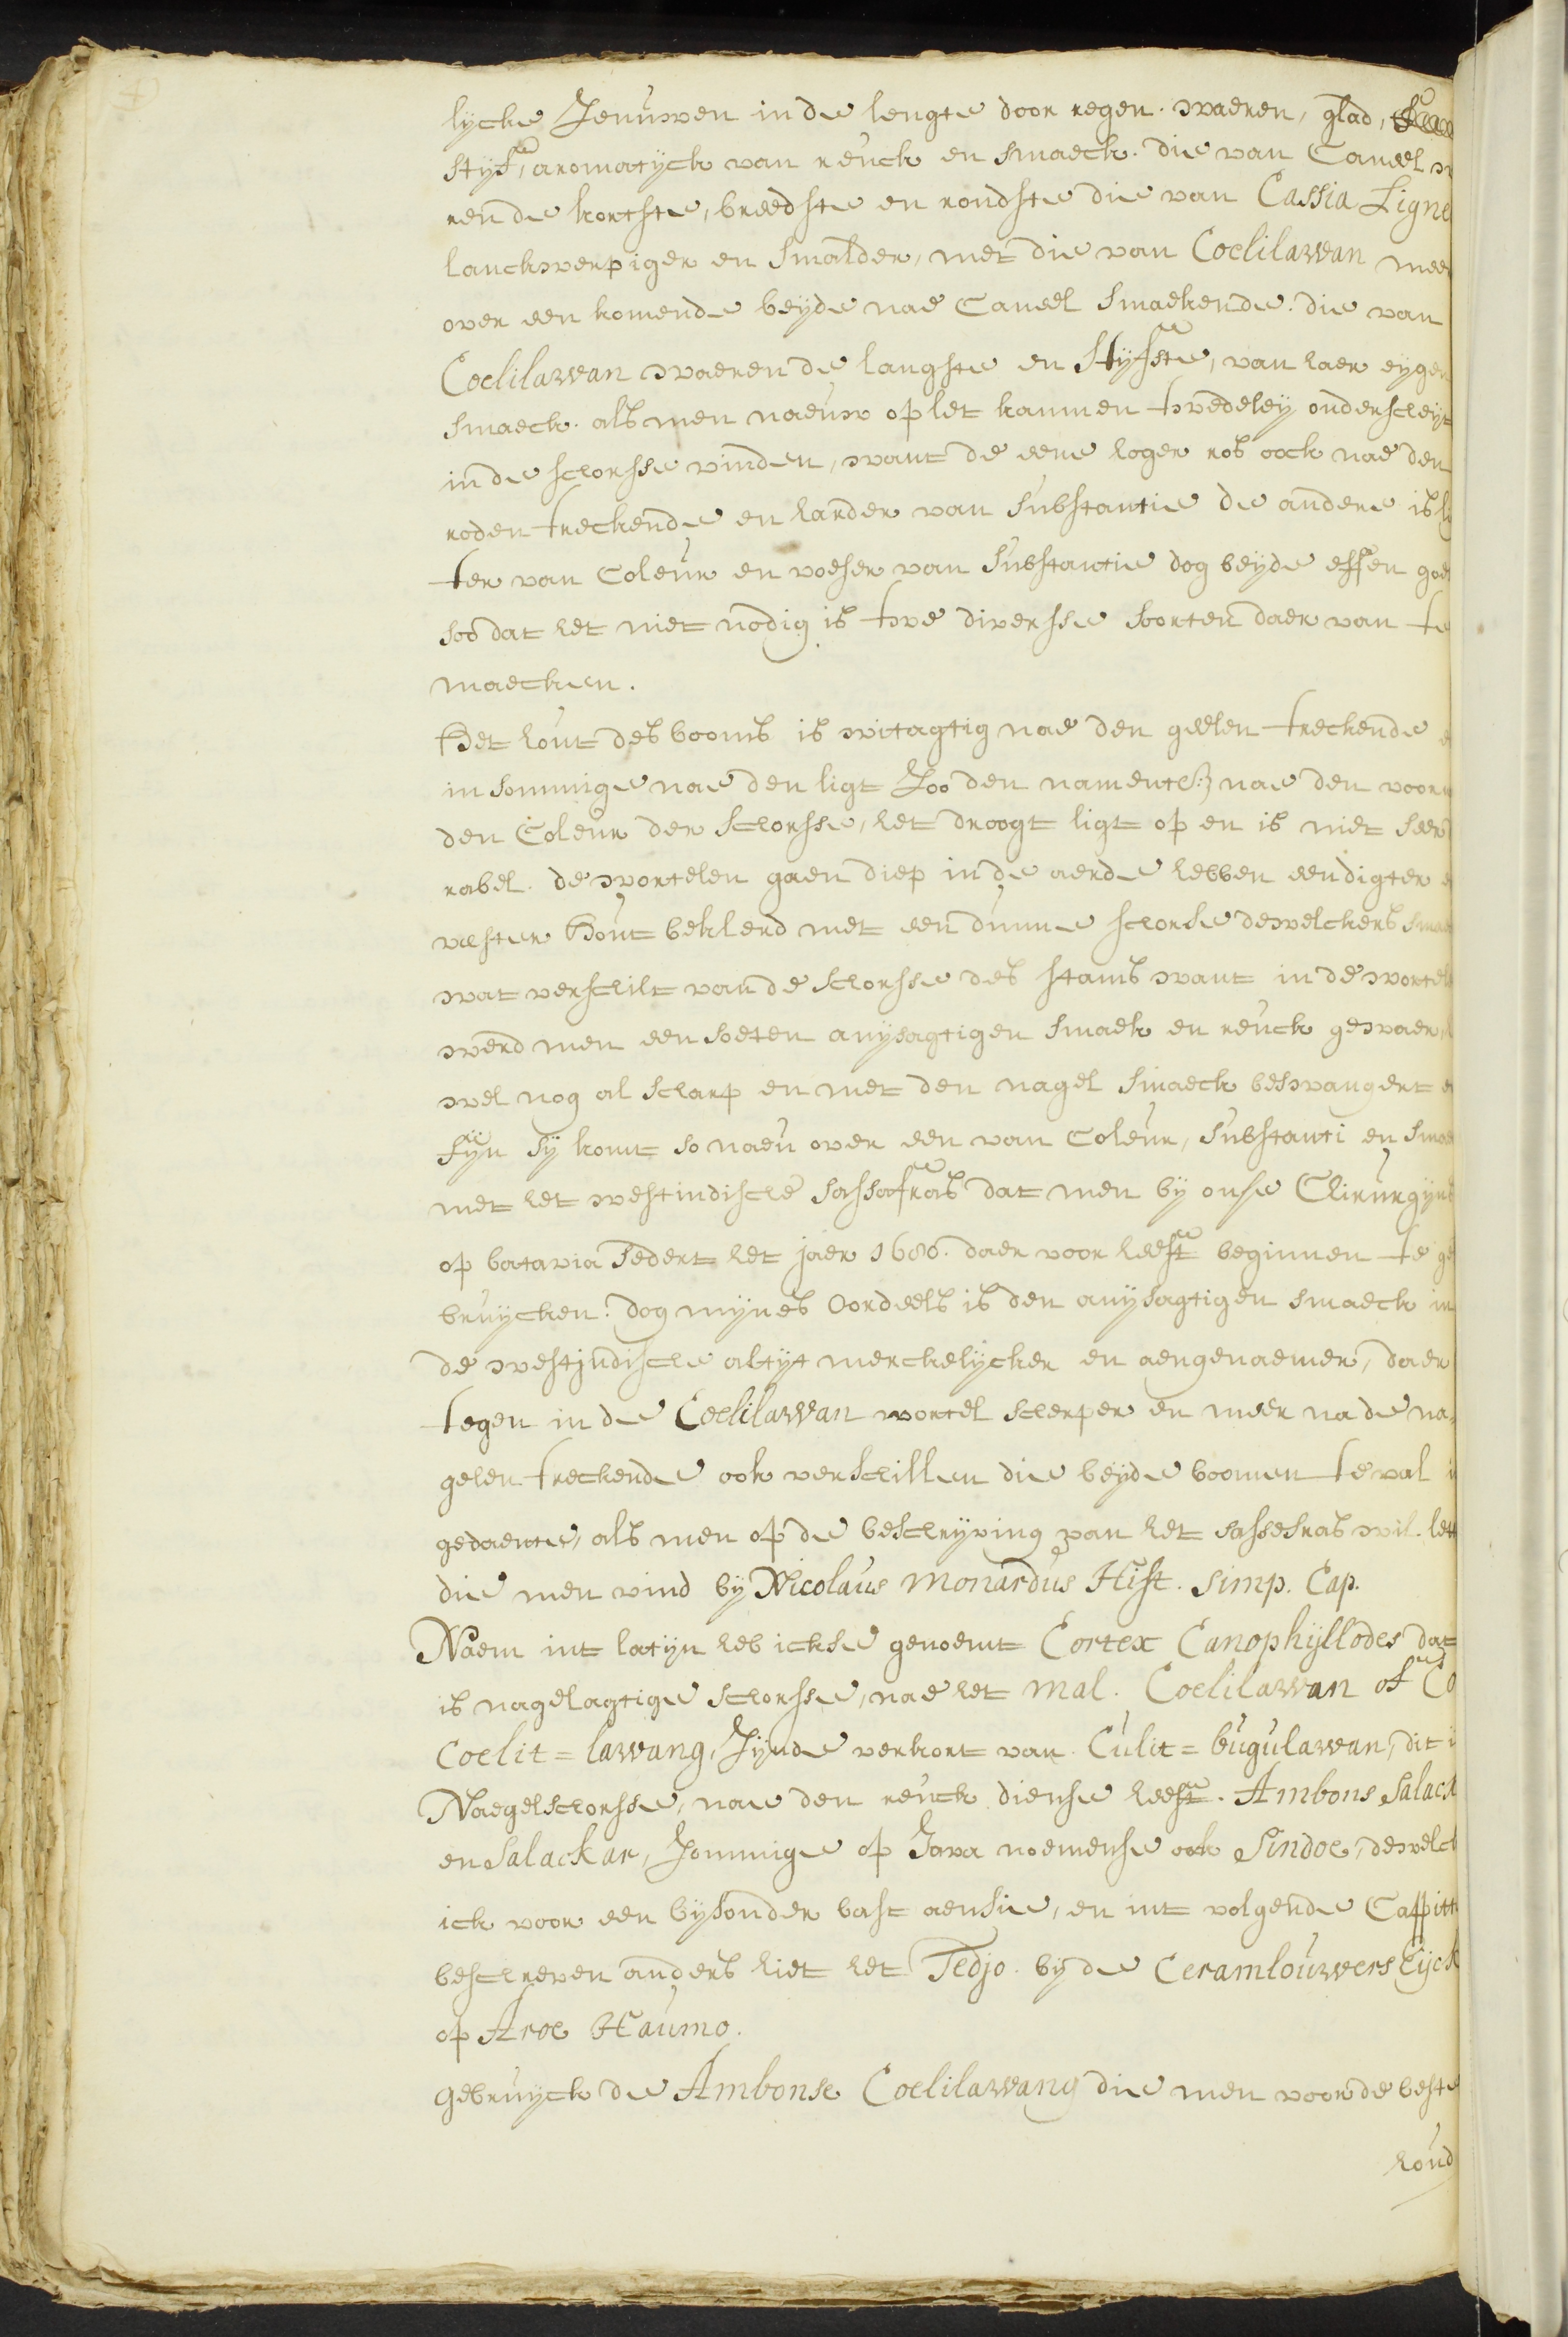 lycke Zenuwen in de lengte door regen. waeren, glad,
styf, aromatyck van reuck en smaeck. die van Caneel w
ren de kortste, breedste en rondste die van Cassia Ligne
lanckwerpiger en smalder, met die van Coelilawan mee
over een komende beyde nae Caneel smaekende. die van
Coelilawan waeren de langste en styfste, van haer eygen
smaeck. als men nauw op let kanmen twedeley onderscheyt
in de schorsse vinden, want de eene hoger ros ock nae den
roden treckende en harder van substantie de andere is li
ter van Coleur en voeser van substantie dog beyde effen goet
soo dat het niet nodig is twe diversse soorten daer van te
maecken.
Het hout des booms is witagtig nae den geelen treckende e
in sommige nae den ligt Zooden namentl: nae den voorn
den Coleur der schorsse, het droogt ligt op en is niet seer
rabel. de wortelen gaen diep in de aerde hebben een digter e
vaster Hout bekleed met een dunne schorse dewelckers smae
wat verschilt van de schorsse des stams want in de wortels
werd men een soeten anysagtigen smaek en reuck gewaer,
wel nog al scharp en met den nagel smaeck beswangert e
fyn sy komt so naeu over een van Coleur, substanti en smae
met het westindische sassafras dat men by onse Chirurgyns
op batavia sedert het jaer 1680. daer voor heeft beginnen te ge
bruycken: dog mynes Oordeels is den anysagtigen smaeck in
de westindische altyt merckelycker en aengenaemer, daer
tegen in de Coelilawan wortel scherper en meer na de na
gelen treckende ook verschillen die beyde boomen te wal i
gedaente, als men op de beschryving van het sassefras wil lett
die men vind by Nicolaus Monardus Hist. Simp. Cap.
Naem int latyn heb ickse genoemt Cortex Canophyllodes dat
is nagelagtige schorsse, nae het Mal. Coelilawan of Co
Coelit = lawang, Zynde verkort van Culit = bugulawan, dit i
Naegelschorsse, nae den reuck diense heeft. Ambons Salack
en Salackar, Zommige op Java noemense ook Sindoc, dewelck
ick voor een bysonder bast aensie, en int volgende Cappitt
beschreven anders hiet het Tedjo. by de Ceramlouwers Eyck
op Aroe Haumo.
gebruyck de Ambonse Coelilawang die men voor de beste
houd